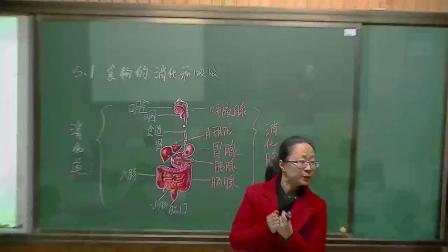 5.1 食物的消化和吸收
口腔
咽
食道
胃
小肠
肛门
唾液腺
肝脏
胃腺
胰腺
肠腺
消化道
消化腺